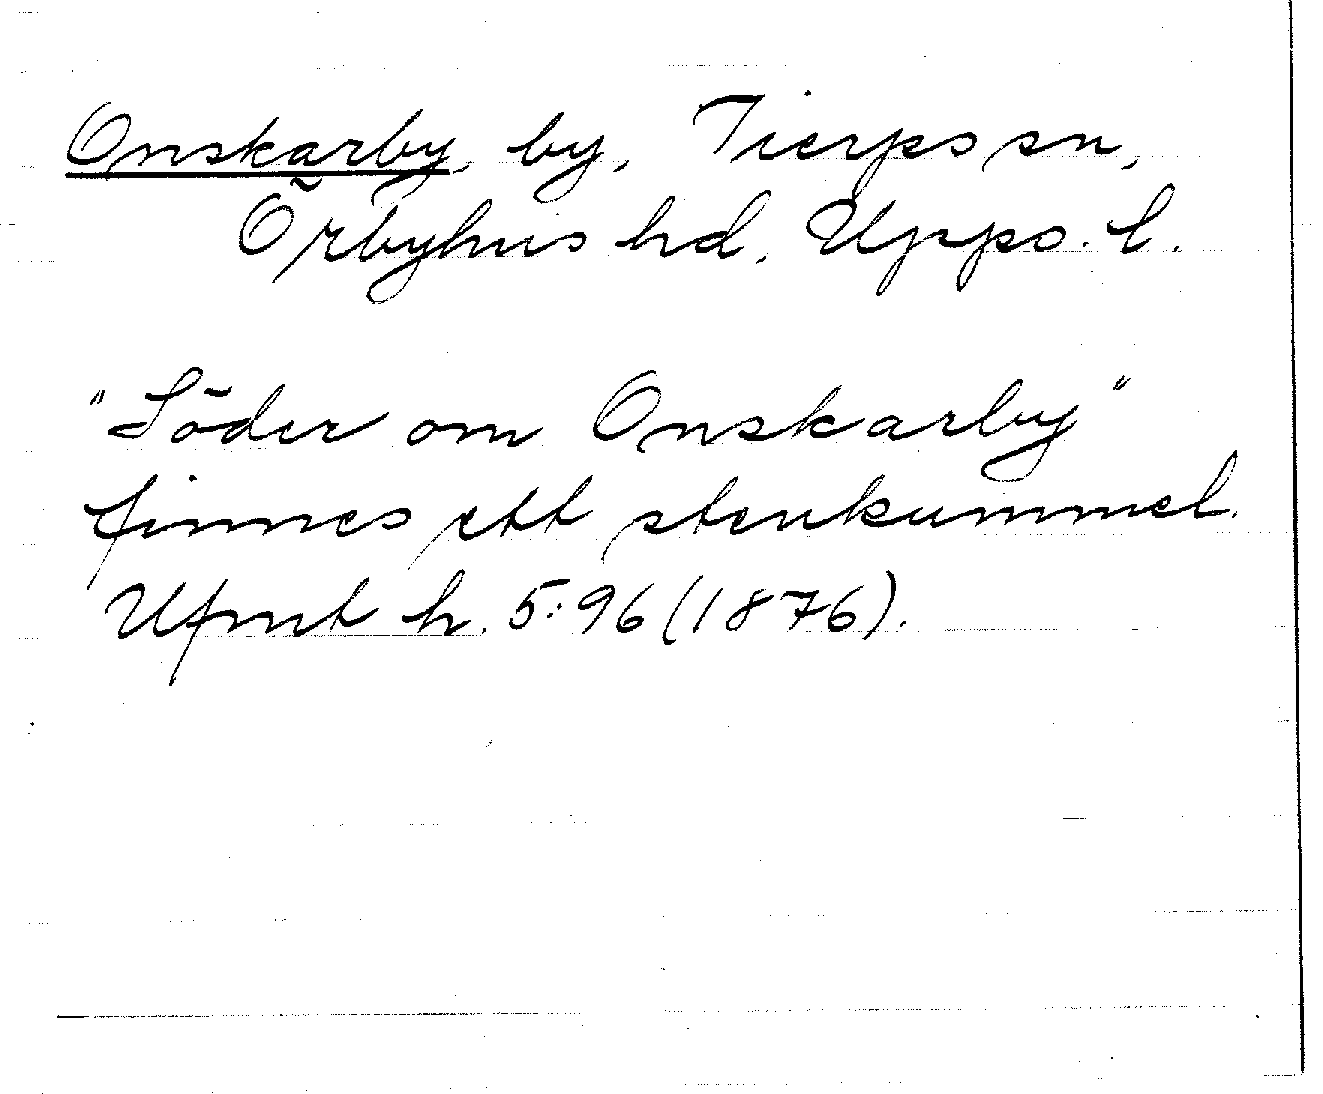 Onskarby, by, Tierps sn,
Örbyhus hd, Upps. l.
"Söder om Onskarby"
finnes ett stenkummel.
Ufmt h. 5:96 (1876).